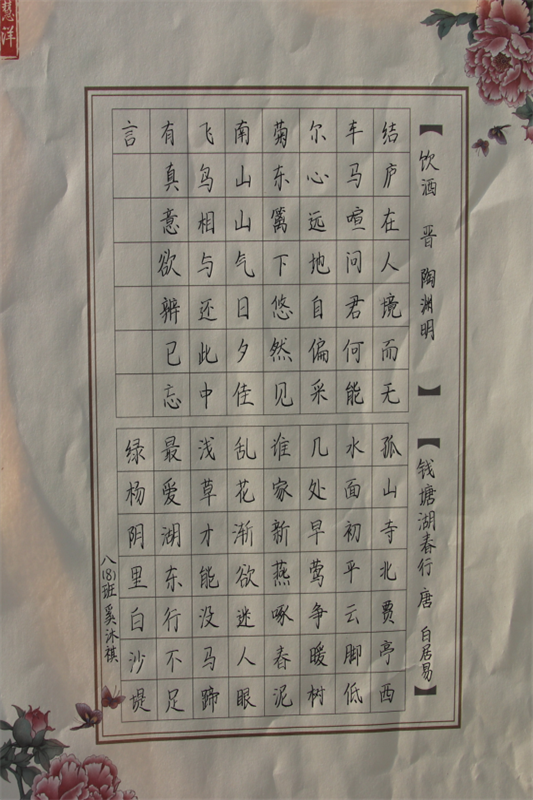 【饮酒 晋 陶渊明】
结庐在人境而无
车马喧问君何能
尔心远地自偏采
菊东篱下悠然见
南山山气日夕佳
飞鸟相与还此中
有真意欲辨已忘
言
【钱塘湖春行 唐 白居易】
孤山寺北贾亭西
水面初平云脚低
几处早莺争暖树
谁家新燕啄春泥
乱花渐欲迷人眼
浅草才能没马蹄
最爱湖东行不足
绿杨阴里白沙堤
八(8)班 奚沐祺
慧洋